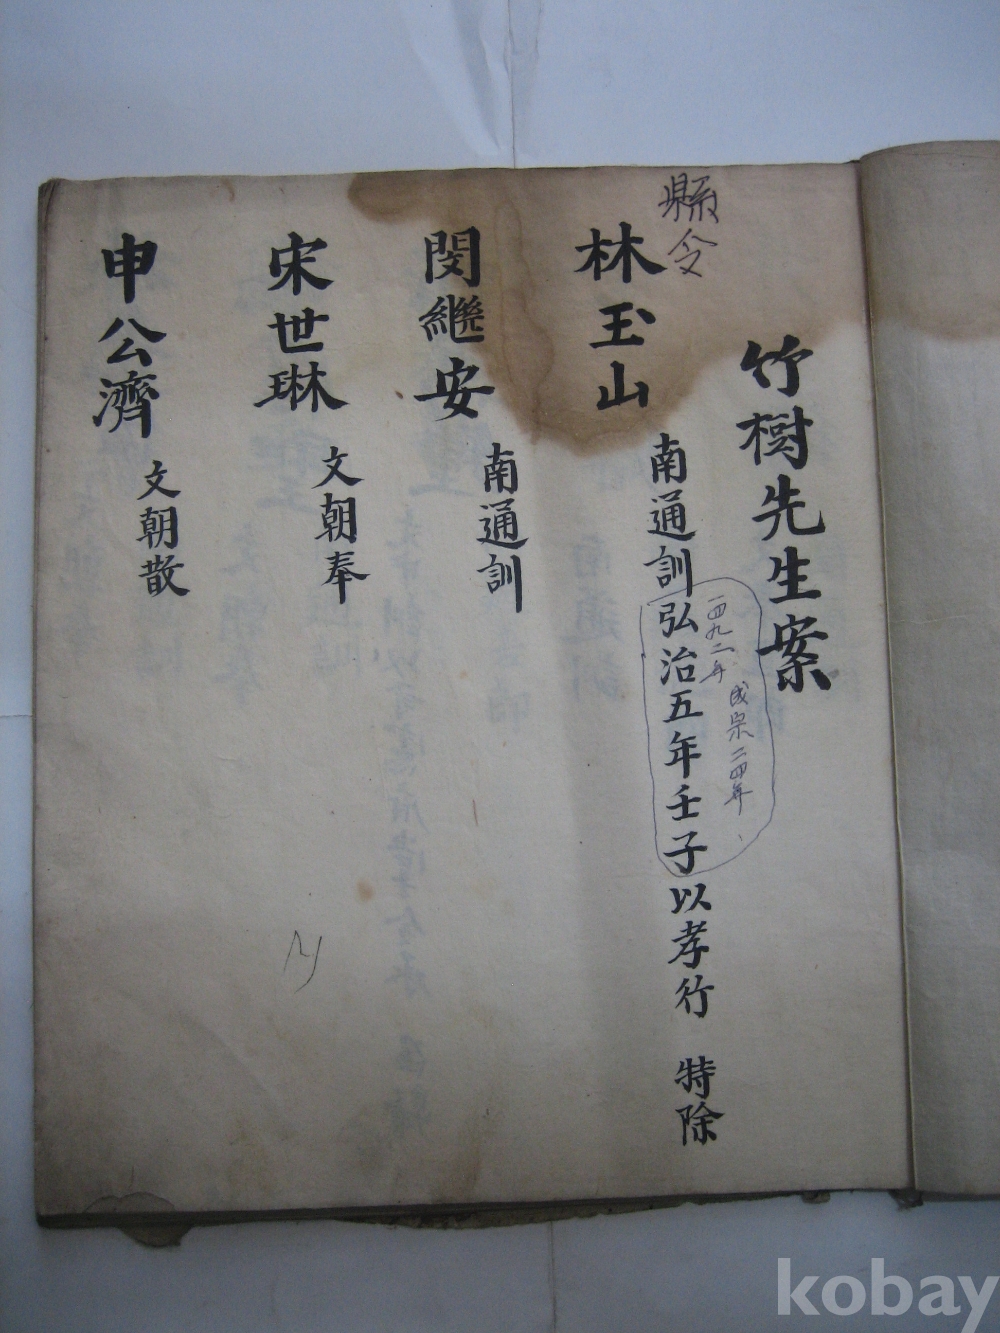 竹樹先生案
縣令
林玉山 南通訓 弘治五年壬子以孝行 特除
一四九二年 成宗二四年
閔繼安 南通訓
宋世琳 文朝奉
申公濟 文朝散
kobay